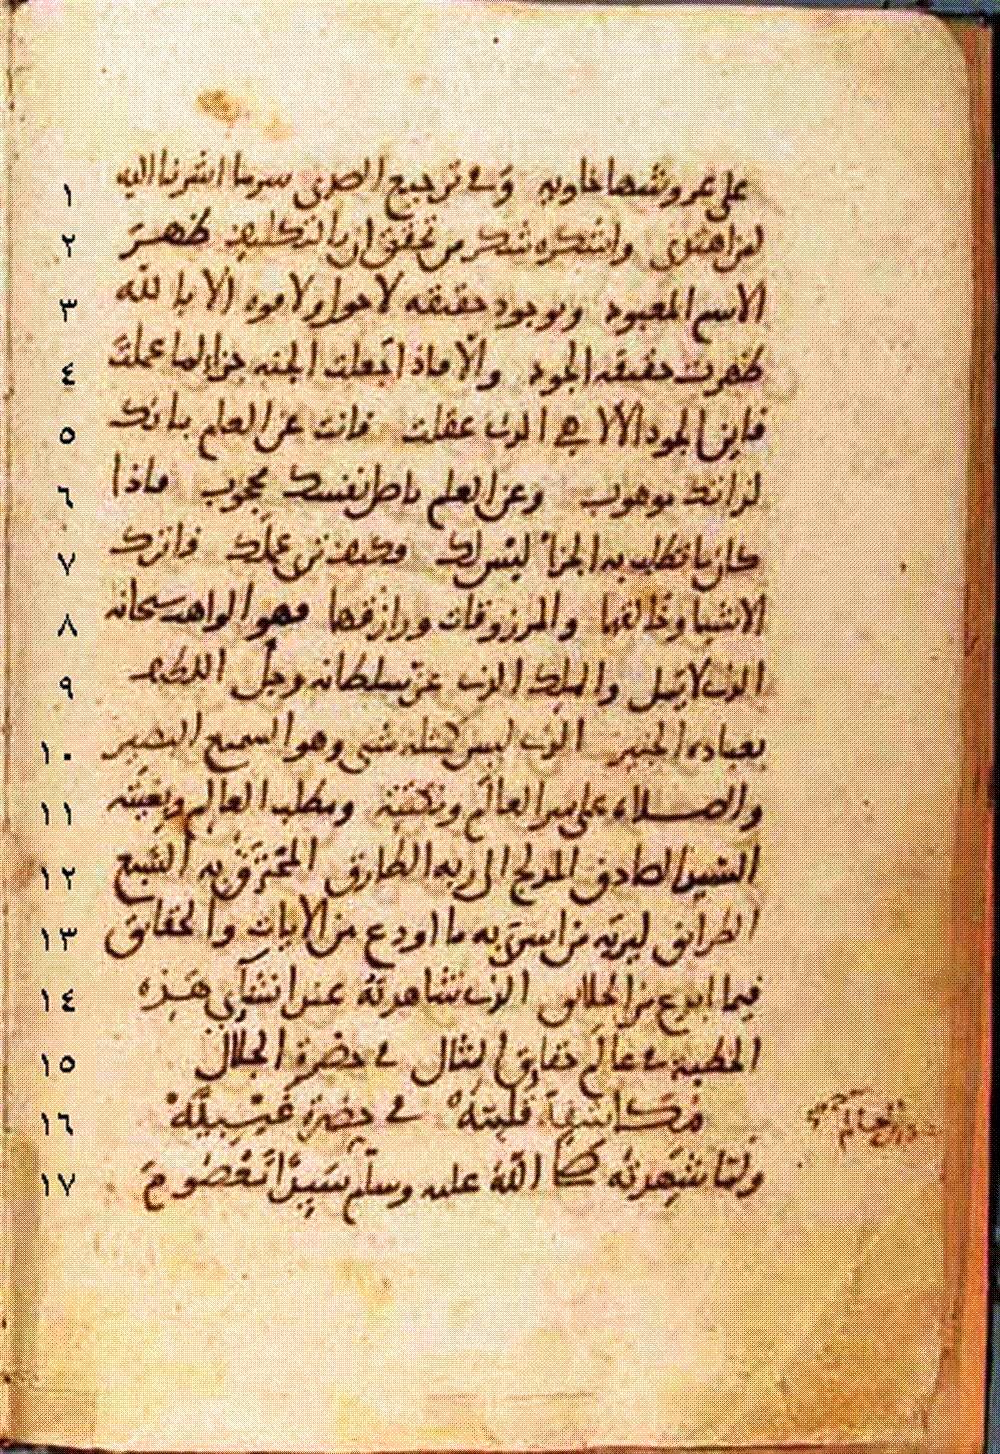 على عروشها خاويه وفى ترجيع الصدى سر ما اشرنا اليه
لمن اهتدى واشكره شكر من تحقق ان بالتكليف ظهر
الاسم المعبود وبوجود حقيقه لا حول ولا قوه الا بالله
ظهرت حقيقه الجود والا فاذا جعلت الجنه جزاء لما عملت
فاين الجود الالاهي الذى عقلت فانت عن العلم بانك
لذاتك موهوب وعن العلم باصل نفسك محجوب فاذا
كان ما تطلب به الجزا ليس لك فكيف ترى عملك فاترك
الاشيا وخالقها والمرزوقات ورازقها فهو الواهب سبحانه
الذى لا يمل والملك الذى عز سلطانه وجل اللطيف
بعباده الخبير الذى ليس كمثله شى وهو السميع البصير
والصلاه على سر العالم ونكتته ومطلب العالم وبغيته
السيد الصادق المدلج الى ربه الطارق المخترق به السبع
الطرائق ليريه من اسرى به ما اودع من الايات والحقائق
فيما ابدع من الخلائق الذى شاهدته عند انشآى هذه
الخطبه فى عالم حقايق المثال فى حضرة الجلال
مكاشفة قلبيّه فى حضرة غيبيّه
ولمّا شهدته صلى اللّه عليه وسلّم سيّدا معصوم